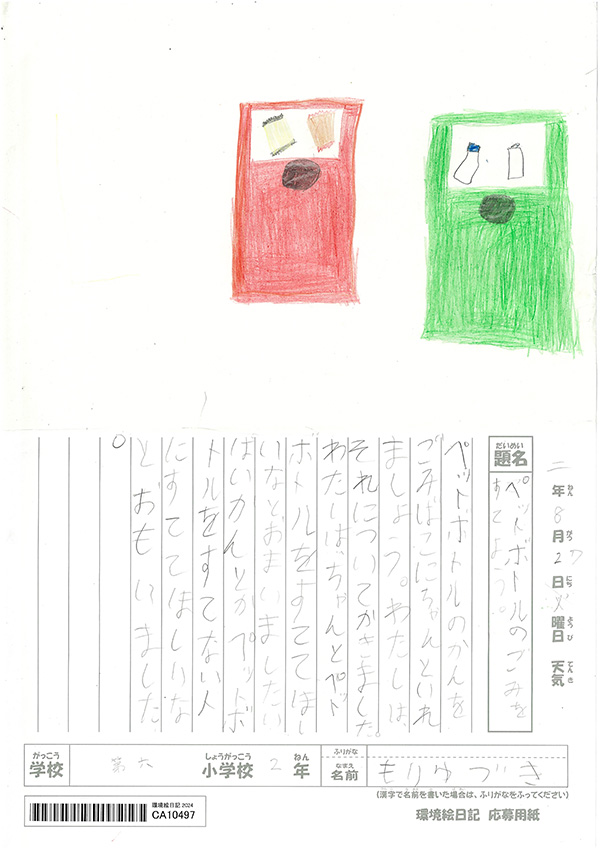 二年8月27日火曜日 天気
ねん がつ にち ようび てんき
だいめい
題名
ペットボトルのごみを
すてよう。
ペットボトルのかんを
ごみばこにちゃんといれ
ましょう。わたしは、
それについてかきました。
わたしはちゃんとペット
ボトルをすててほし
いなとおまいましたい
はいかんとかペットボ
トルをすてない人
にすててほしいな
とおもいました
。
がっこう しょうがっこう ねん ふりがな
学校 第六 小学校 2年
なまえ
名前 もりゆづき
(漢字で名前を書いた場合は、ふりがなをふってください)
環境絵日記 2024
CA10497
環境絵日記 応募用紙